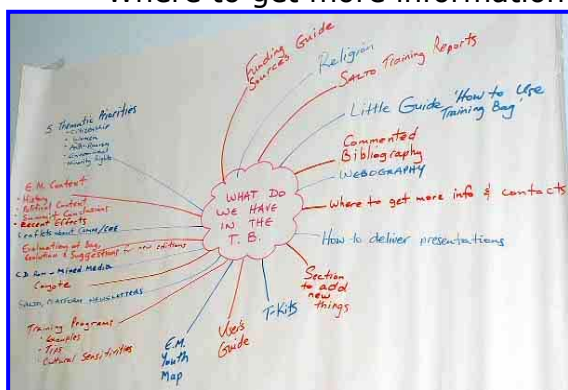 Where to get more information
Funding
Sources Guide
Religion
SALTO Training Reports
Little Guide 'How to Use
Training Bag'
Commented
Bibliography
WEBOGRAPHY
Where to get more info & contacts
How to deliver presentations
Section
to add
new
things
T-Kits
User's
Guide
E.M.
Youth
Map
Training Programs
• Examples
• Tips
• Cultural Sensitivities
SALTO PLATFORM NEWSLETTERS
Coyote
C.D. Rom - Mixed Media
Evaluation of Bag,
Evolution & Suggestions for new editions
Leaflets about Comm/COE
E.M. Context
• History
• Political Context
• Summit Conclusions
• Recent Effects
5 Thematic Priorities
• Citizenship
• Women
• Environment
• Minority Rights
WHAT DO
WE HAVE
IN THE
T.B.